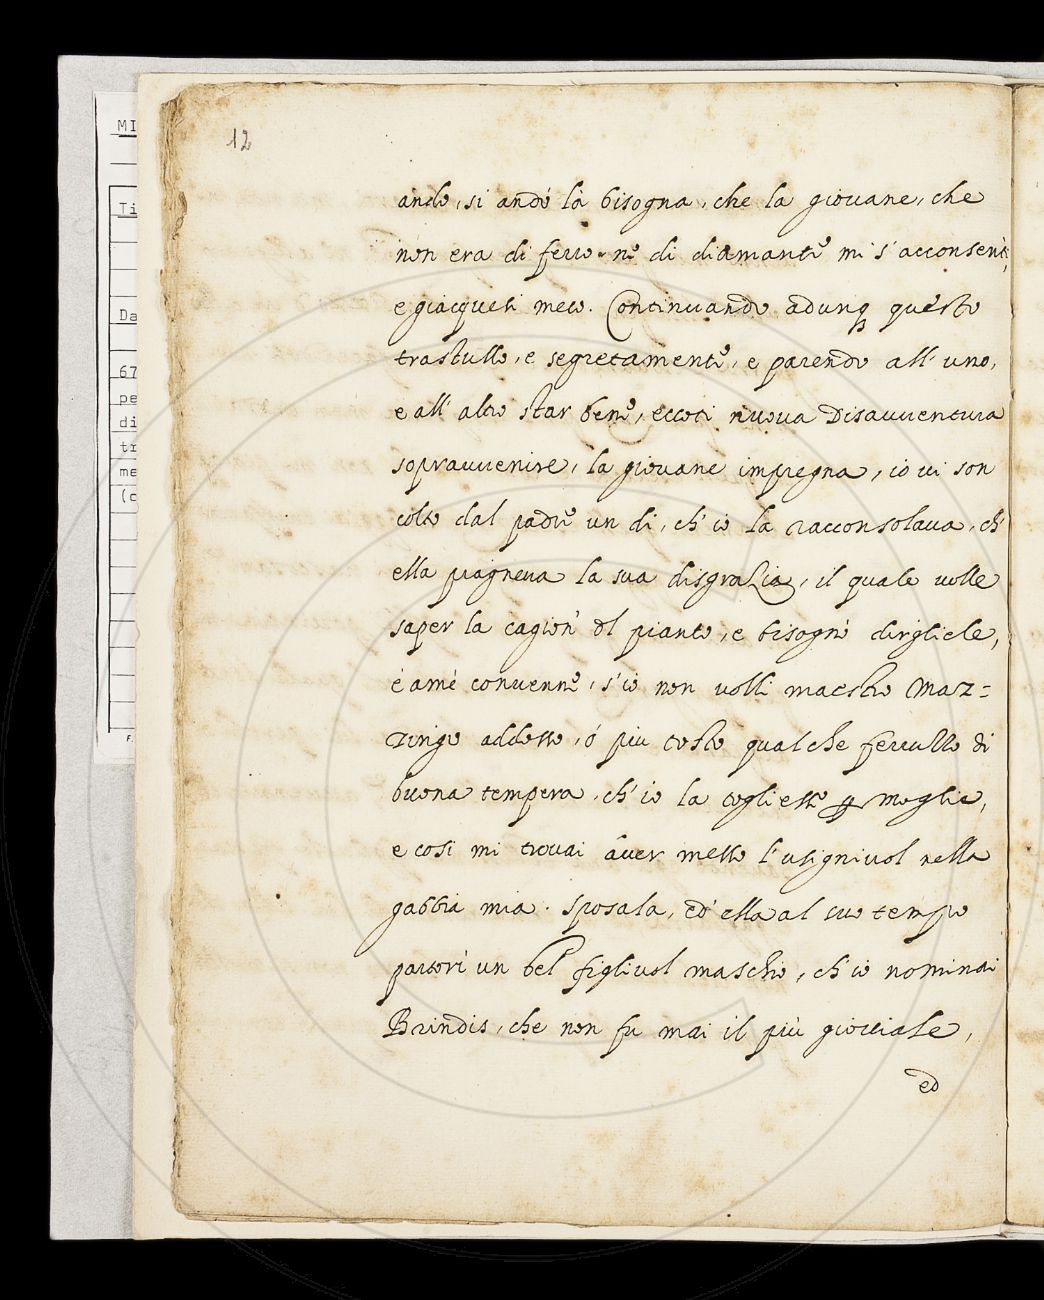 12
ando, si andò là bisogna, che la giouane, che
non era di ferro ne di diamante mi s' acconsentì,
e giacquesi meco. Continuando adunq questo
trastullo, e segretamente, e parendo all' uno,
e all' altro star bene, eccoti nuoua Disauuentura
soprauuenire, la giouane impregna, io ui son
colto dal padre un di, ch' io la racconsolaua, ch'
ella piagneua la sua disgrazia, il quale uolle
saper la cagion dl pianto, e bisognò dirgliele,
è amé conuenne, s' io non uolli maestro Maz=
zingo addosso, ó piu tosto qualche ferrullo di
buona tempera, ch' io la togliesse p moglie,
e cosi mi trouai áuer messo l' usigniuol nella
gabbia mia. sposala, ed' ella al suo tempo
partorì un bel figliuol maschio, ch' io nominai
Brindis, che non fu mai il più giouiale,
ed
MI
Ti
Da
67
pe
di
tr
me
(c
F.